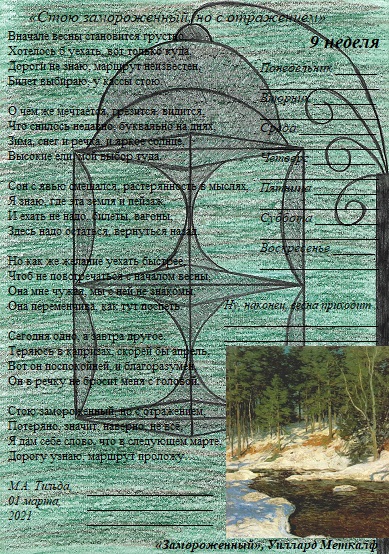 «Стою замороженный, но с отражением»
Вначале весны становится грустно.
Хотелось б уехать, вот только куда.
Дороги не знаю, маршрут неизвестен,
Билет выбираю, у кассы стою.
О чём же мечтается, грезится, видится,
Что снилось недавно, буквально на днях,
Зима, снег и речка, и яркое солнце.
Высокие ели, мой выбор туда.
Сон с явью смешался, растерянность в мыслях,
Я знаю, где эта земля и пейзаж.
И ехать не надо, билеты, вагоны,
Здесь надо остаться, вернуться назад.
Но как же желание уехать быстрее,
Чтоб не повстречаться с началом весны,
Она мне чужая, мы с ней не знакомы.
Она переменчива, как тут поспеть.
Сегодня одно, а завтра другое.
Теряюсь в капризах, скорей бы апрель,
Вот он поспокойней, и благоразумен,
Он в речку не бросит меня с головой.
Стою замороженный, но с отражением,
Потеряно, значит, наверно, не всё,
Я дам себе слово, что в следующем марте,
Дорогу узнаю, маршрут проложу.
М.А. Тильда,
01 марта,
2021
9 неделя
Понедельник
Вторник
Среда
Четверг
Пятница
Суббота
Воскресенье
Ну, наконец, весна приходит
«Замороженный», Уиллард Меткалф